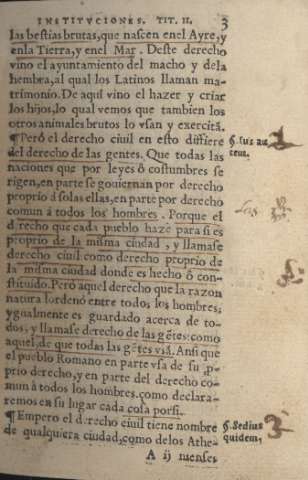 INSTITVCIONES. TIT. II. 3
las bestias brutas, que nascen enel Ayre, y
enla Tierra, y enel Mar. Deste derecho
vino el ayuntamiento del macho y dela
hembra, al qual los Latinos llaman ma-
trimonio. De aqui vino el hazer y criar
los hijos, lo qual vemos que tambien los
otros animales brutos lo vsan y exercitã.
¶ Però el derecho ciuil en esto differe
del derecho de las gentes. Que todas las
naciones que por leyes ò costumbres se
rigen, en parte se gouiernan por derecho
proprio à solas ellas, en parte por derecho
comun à todos los hombres. Porque el
derecho que cada pueblo haze para si es
proprio de la misma ciudad, y llamase
derecho ciuil como derecho proprio de
la misma ciudad donde es hecho ò con-
stituido. Però aquel derecho que la razon
natura lordenò entre todos los hombres,
ygualmente es guardado acerca de to-
dos, y llamase derecho de las gẽtes: como
aquel, de que todas las gẽtes vsã. Ansi que
el pueblo Romano en parte vsa de su ,p-
prio derecho, y en parte del derecho co-
mun à todos los hombres, como declara-
remos en su lugar cada cosa porsi.
¶ Empero el derecho ciuil tiene nombre
de qualquiera ciudad, como delos Athe-
A ij nienses
§. Ius au
tem.
§. Sed ius
quidem,